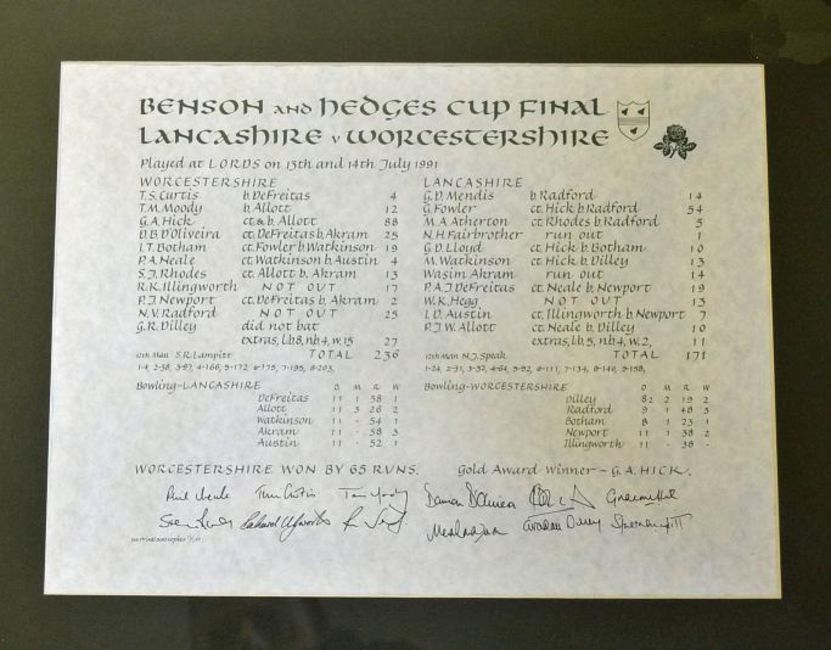 BENSON AND HEDGES CUP FINAL
LANCASHIRE v WORCESTERSHIRE
Played at LORDS on 13th and 14th July 1991
WORCESTERSHIRE
T.S. Curtis b. DeFreitas 4
T.M. Moody b. Allott 12
G.A. Hick ct & b. Allott 88
D.B. D'Oliveira ct. DeFreitas b. Akram 25
I.T. Botham ct. Fowler b. Watkinson 19
P.A. Neale ct. Watkinson b. Austin 4
S.J. Rhodes ct. Allott b. Akram 13
R.K. Illingworth NOT OUT 17
P.J. Newport ct. DeFreitas b. Akram 2
N.V. Radford NOT OUT 25
G.R. Dilley did not bat
extras, l.b.8, nb.4, w.15 27
12th Man S.R. Lampitt TOTAL 236
1-4, 2-38, 3-97, 4-166, 5-172, 6-175, 7-195, 8-203,
LANCASHIRE
G.D. Mendis b. Radford 14
G. Fowler ct. Hick b. Radford 54
M.A. Atherton ct. Rhodes b. Radford 5
N.H. Fairbrother run out 1
G.D. Lloyd ct. Hick b. Botham 10
M. Watkinson ct. Hick b. Dilley 13
Wasim Akram run out 14
P.A.J. DeFreitas ct. Neale b. Newport 19
W.K. Hegg NOT OUT 13
I.D. Austin ct. Illingworth b. Newport 7
P.J.W. Allott ct. Neale b. Dilley 10
extras, l.b.5, nb.4, w.2, 11
12th Man N.J. Speak TOTAL 171
1-24, 2-31, 3-32, 4-64, 5-92, 6-111, 7-134, 8-140, 9-158,
Bowling-LANCASHIRE O M R W
DeFreitas 11 1 38 1
Allott 11 3 26 2
Watkinson 11 - 54 1
Akram 11 - 58 3
Austin 11 - 52 1
Bowling-WORCESTERSHIRE O M R W
Dilley 8.2 2 19 2
Radford 9 1 48 3
Botham 8 1 23 1
Newport 11 1 38 2
Illingworth 11 - 38 -
WORCESTERSHIRE WON BY 65 RUNS. Gold Award Winner - G.A. HICK.